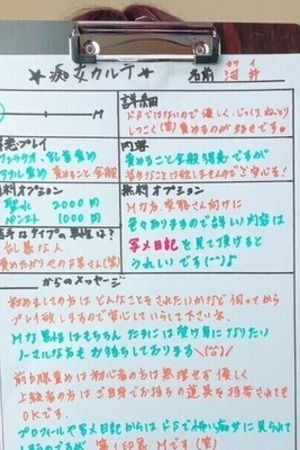 ★痴女カルテ★
名前 河井
カワイ
S M
詳細
ドSではないので優しく、じっくり、ねっとり
しつこく(笑)責めるのが好きです。
得意プレイ
フェラチオ、乳首責め
アナル責め 責めること全般
内容
責めること全般得意ですが
苦手なことは致しませんのでご安心を!
有料オプション
聖水 2000円
パンスト 1000円
無料オプション
Mな方、変態さん向けに
色々ありますので詳しい内容は
写メ日記を見て頂けると
うれしいです
苦手なタイプの男性は?
乱暴な人
責めたがりやのドSさん(笑)
からのメッセージ
初めましての方はどんなことをされたいかなど伺ってから
プレイ致しますので安心していらして下さいネ
Mな男性はもちろん たまには受け身になりたい
ノーマルな方もお待ちしております
前立腺責めは初心者の方は無理せず優しく
上級者の方はご自身でお持ちの道具を持参されても
OKです。
プロフィールや写メ日記からはドSで怖い痴女に見られて
しまうのですが 第1印象 Mです(笑)